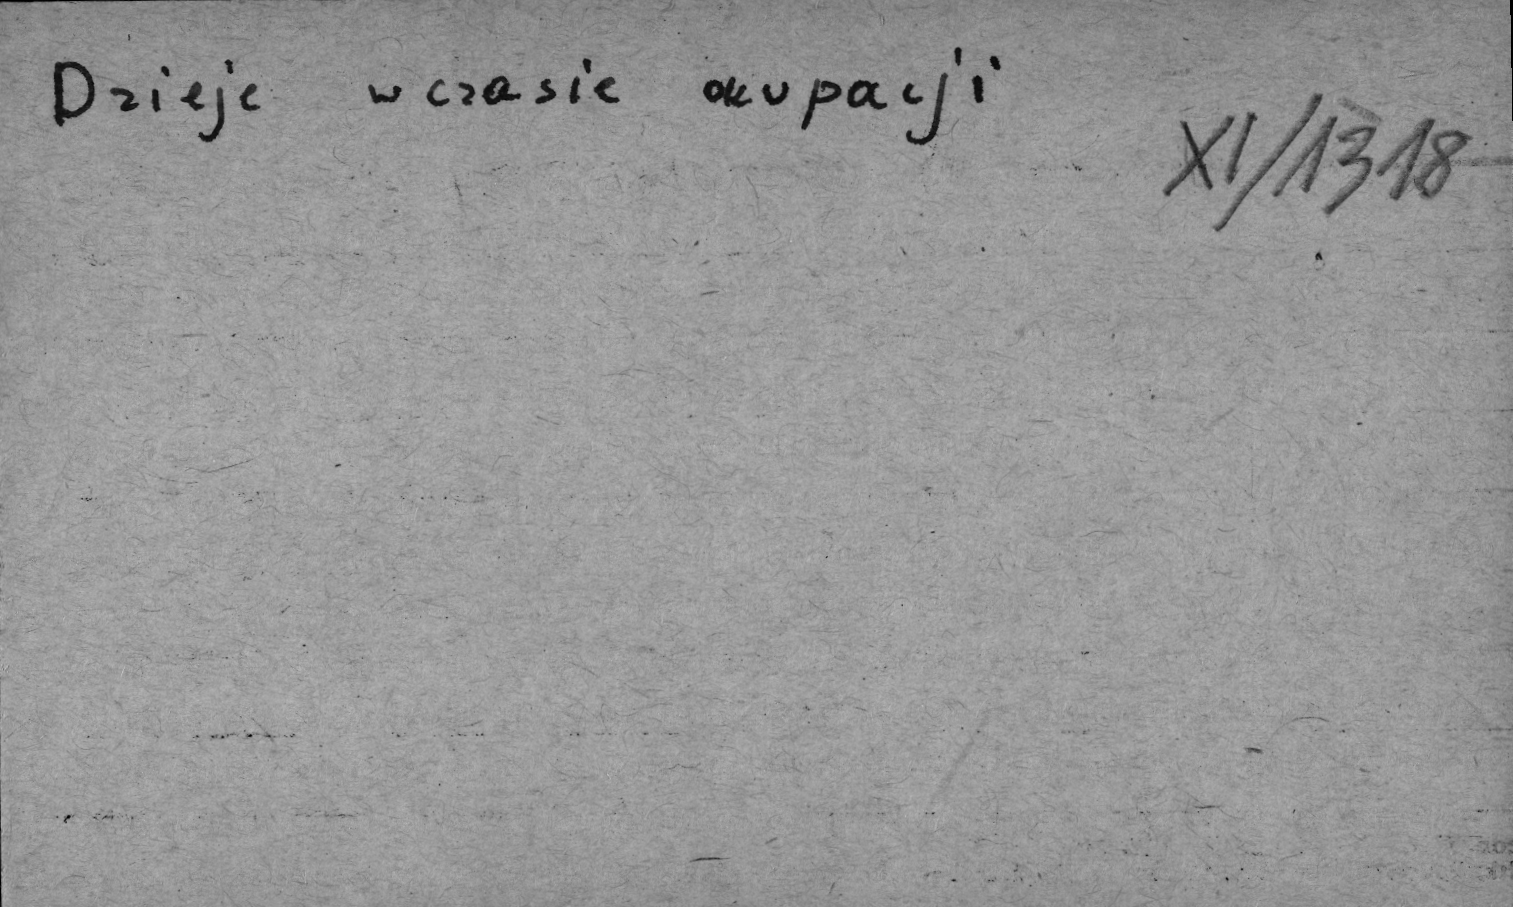 Dzieje w czasie okupacji
XI/1318